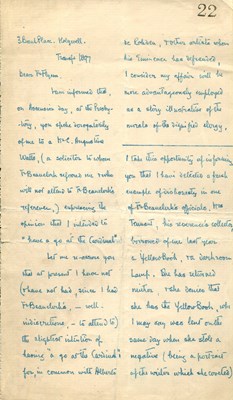 22
3 Bank Place. Holywell.
Tuesd. 1897
Dear Fr Flynn
I am informed that,
on Ascension day, at the Presby-
tery, you spoke derogatorily
of me to a Mr C. Augustine
Watts, (a solicitor to whom
Fr Beauclerk referred me & who
will not attend to Fr Beauclerk's
reference,) expressing the
opinion that I intended to
"have a go at the Cardinal".
Let me reassure you
that at present I have not
(& have not had, since I had
Fr Beauclerk's, — well
indiscretions — to attend to)
the slightest intention of
having "a go at the Cardinal"
for, in common with Alberti
de Rohden, & other artists whom
his Eminence has defrauded,
I consider my affair will be
more advantageously employed
as a story illustrative of the
morals of the dignified clergy.
I take this opportunity of informing
you that I have detected a fresh
example of dishonesty in one
of Fr Beauclerk's officials. Mrs
Tennant, his reverence's collector
borrowed of me last year
a Yellow Book, & a workroom
Lamp. She has returned
neither & she denies that
she has the Yellow Book, which
I may say was lent on the
same day when she stole a
negative (being a portrait
of the writer which she coveted)